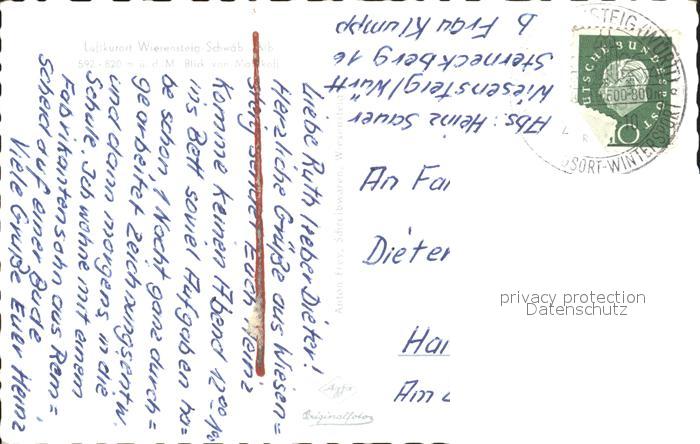 Luftkurort Wiesensteig Schwäb. Alb
592 - 820 m ü. d. M. Blick von
Liebe Ruth lieber Dieter!
Herzliche Grüße aus Wiesen=
steig sendet Euch Heinz
Komme keinen Abend 12ºº
ins Bett soviel Aufgaben ha=
be schon 1 Nacht ganz durch=
gearbeitet Zeichnungsentw.
und dann morgens in die
Schule. Ich wohne mit einem
Fabrikantensohn aus Rem=
scheid auf einer Bude
Viele Grüße Euer Heinz
Anton Frey, Schreibwaren, Wiesensteig
Abs: Heinz Sauer
Wiesensteig/Württ
Sterneckberg 16
b Frau Klumpp
An Fa
Dieter
Ha
Am
Agfa
Originalfoto
DEUTSCHE BUNDESPOST
10
STEIG (WÜRTT)
600-800m
WINTERSPORT
privacy protection
Datenschutz